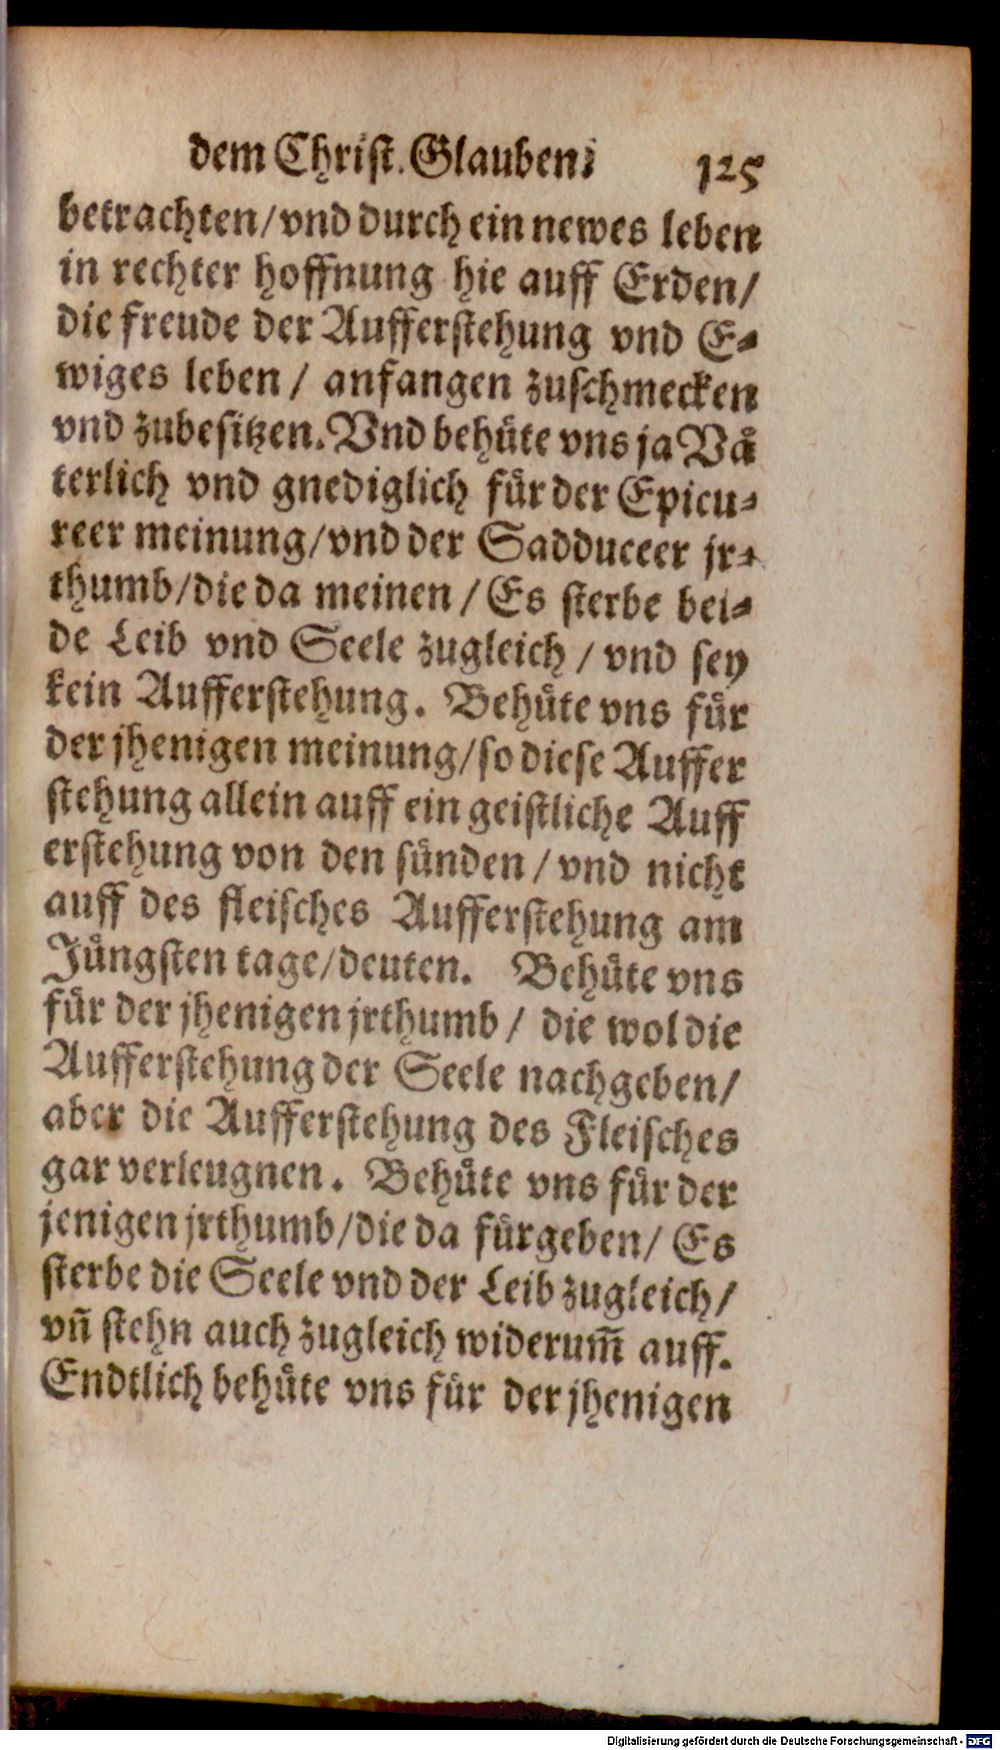 dem Christ. Glauben; 125
betrachten/vnd durch ein newes leben
in rechter hoffnung hie auff Erden/
die freude der Aufferstehung vnd E⸗
wiges leben / anfangen zuschmecken
vnd zubesitzen. Vnd behuͤte vns ja Vaͤ
terlich vnd gnediglich fuͤr der Epicu⸗
reer meinung/vnd der Sadduceer jr⸗
thumb/die da meinen / Es sterbe bei⸗
de Leib vnd Seele zugleich / vnd sey
kein Aufferstehung. Behuͤte vns fuͤr
der jhenigen meinung/so diese Auffer
stehung allein auff ein geistliche Auff
erstehung von den suͤnden / vnd nicht
auff des fleisches Aufferstehung am
Juͤngsten tage/deuten. Behuͤte vns
fuͤr der jhenigen jrthumb / die wol die
Aufferstehung der Seele nachgeben/
aber die Aufferstehung des Fleisches
gar verleugnen. Behuͤte vns fuͤr der
jenigen jrthumb/die da fuͤrgeben/ Es
sterbe die Seele vnd der Leib zugleich/
vñ stehn auch zugleich widerum̃ auff.
Endtlich behuͤte vns fuͤr der jhenigen
Digitalisierung gefördert durch die Deutsche Forschungsgemeinschaft - DFG